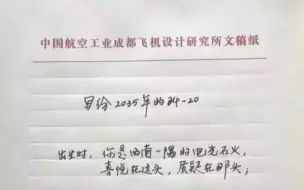 中国航空工业成都飞机设计研究所文稿纸
写给2035年的歼-20
出生时，你是西南一隅的电光石火，
喜悦在这头，质疑在那头；